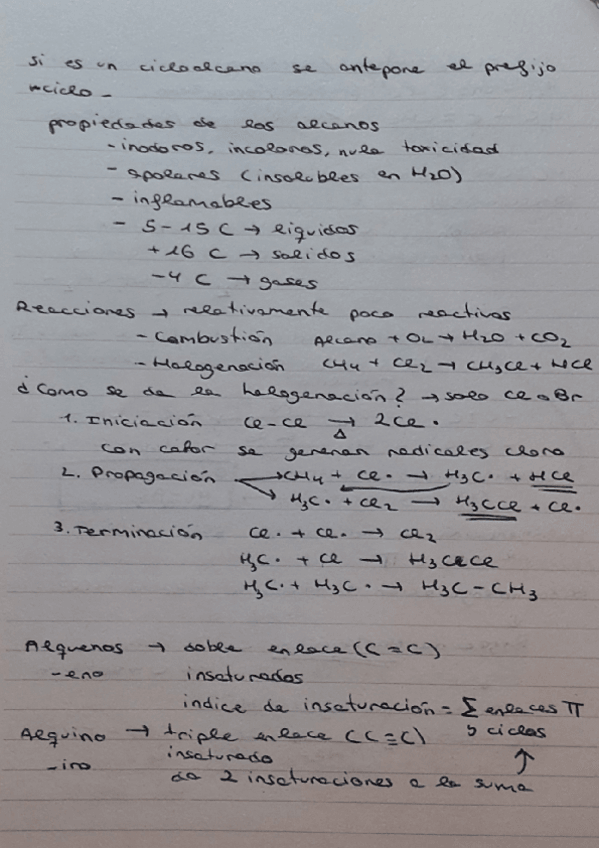 si es un cicloalcano se antepone el prefijo
ciclo-
propiedades de los alcanos
- inodoros, incoloros, nula toxicidad
- apolares (insolubles en H2O)
- inflamables
- 5-15 C → líquidos
+16 C → solidos
-4 C → gases
Reacciones → relativamente poco reactivos
- Combustión Alcano + O2 → H2O + CO2
- Halogenación CH4 + Cl2 → CH3Cl + HCl
¿Como se da la halogenación? → solo Cl o Br
1. Iniciación Cl-Cl →Δ 2Cl·
con calor se generan radicales cloro
2. Propagación → CH4 + Cl· → H3C· + HCl
→ H3C· + Cl2 → H3CCl + Cl·
3. Terminación Cl· + Cl· → Cl2
H3C· + Cl → H3CCl
H3C· + H3C· → H3C-CH3
Alquenos → doble enlace (C=C)
-eno insaturados
indice de insaturación = Σ enlaces π
y ciclos
Alquino → triple enlace (C≡C)
-ino insaturado ↑
da 2 insaturaciones a la suma